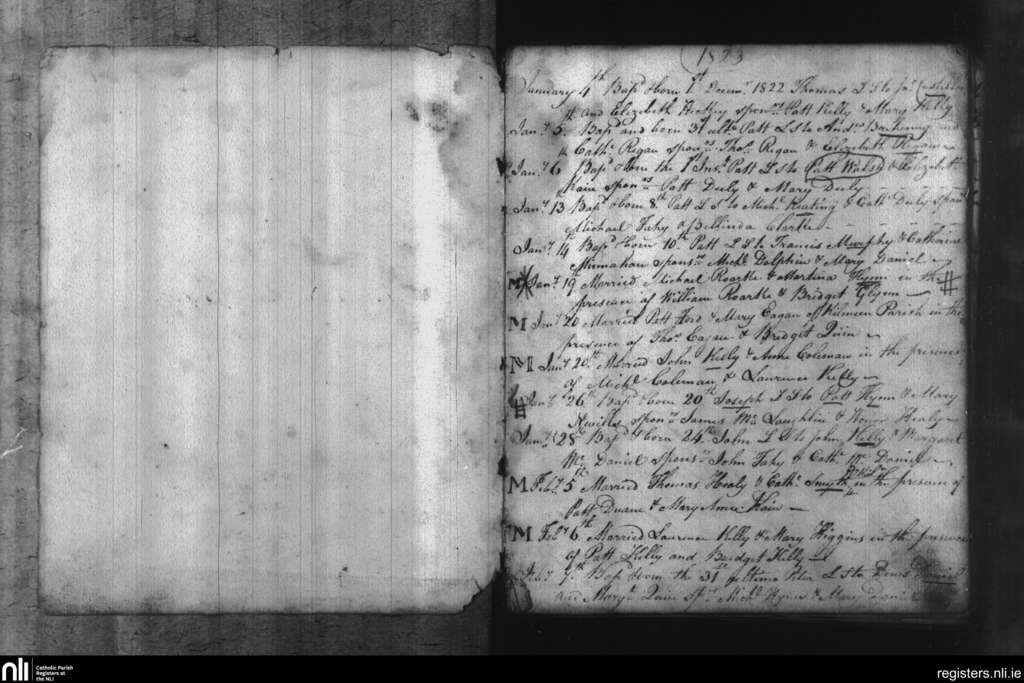 (1823
January 4th Bapd & born 1st Decemr 1822 Thomas L S to Jas
& and Elizabeth Healey sponrs Patt Kelly & Mary Kelly
Jany 5 Bapd and born 31 ulto Patt L S to Andw
& Cathe Regan sponrs Thos Regan & Elizabeth
Jany 6 Bapd & born the 1st Inst Patt L S to Patt Walsh & Elizabeth
Kain sponrs Patt Deely & Mary Deely
Jany 13 Bapd & born 8th Patt L S to Michl Keating & Cathe Deely sponrs
Michael Fahy & Bellinda Clarke
Jany 14 Bapd & born 10th Patt L S to Francis Murphy & Catharine
Minnahan sponrs Michl Dolphin & Mary Daniel
M Jany 19th Married Michael Roarke & Martina Hynn in the #
presence of William Roarke & Bridget Glynn
M Jany 20 Married Patt Ford & Mary Eagan of Kilmeen Parish in the
presence of Thos Eagan & Bridget Quin
M Jany 20th Married John Kelly & Anne Coleman in the presence
of Michl Coleman & Laurence Kelly
# Jany 26th Bapd & born 20th Joseph L S to Patt Hynn & Mary
Neville sponrs James Mc Laughlin & Honor Healy
Jany 28th Bapd & born 24th John L S to John Kelly & Margaret
Mc Daniel sponrs John Fahy & Cathe Mc Daniel
M Feby 5th Married Thomas Healy & Cathe Smyth in the presence of
Patt Duane & Mary Anne Kain
M Feby 6th Married Laurence Kelly & Mary Higgins in the presence
of Patt Kelly and Bridget Kelly
Feby 7th Bapd & born the 31st ultimo Peter L S to Denis Daniel
and Mary Quin sprs Michl Hynn & Mary Daniel
nli
Catholic Parish
Registers at
the NLI
registers.nli.ie